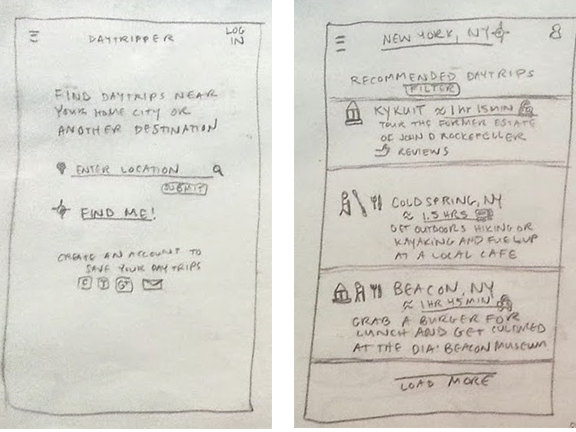 DAYTRIPPER
LOG
IN
FIND DAYTRIPS NEAR
YOUR HOME CITY OR
ANOTHER DESTINATION
ENTER LOCATION
SUBMIT
FIND ME!
CREATE AN ACCOUNT TO
SAVE YOUR DAY TRIPS
NEW YORK, NY
RECOMMENDED DAYTRIPS
FILTER
KYKUIT ≈ 1 hr 15 MIN
TOUR THE FORMER ESTATE
OF JOHN D ROCKEFELLER
REVIEWS
COLD SPRING, NY
≈ 1.5 HRS
GET OUTDOORS HIKING OR
KAYAKING AND FUEL UP
AT A LOCAL CAFE
BEACON, NY
≈ 1 HR 45 MIN
GRAB A BURGER FOR
LUNCH AND GET CULTURED
AT THE DIA: BEACON MUSEUM
LOAD MORE